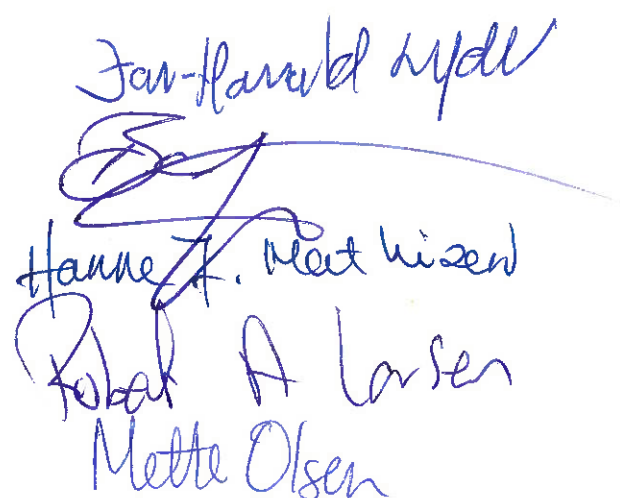 Jan-Harald Lyder
Hanne F. Mathisen
Robert A Larsen
Mette Olsen